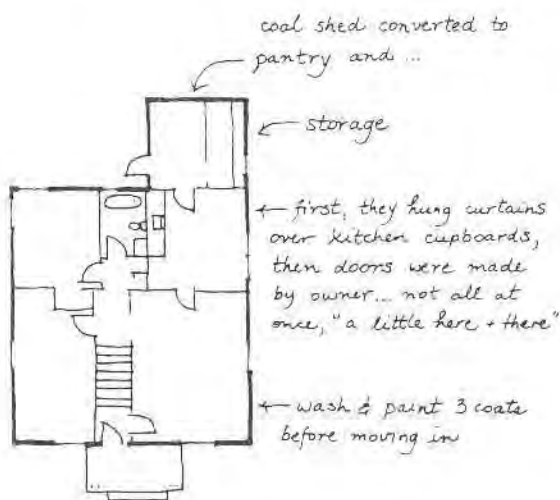 coal shed converted to
pantry and ...
storage
first, they hung curtains
over kitchen cupboards,
then doors were made
by owner... not all at
once, "a little here + there"
wash & paint 3 coats
before moving in